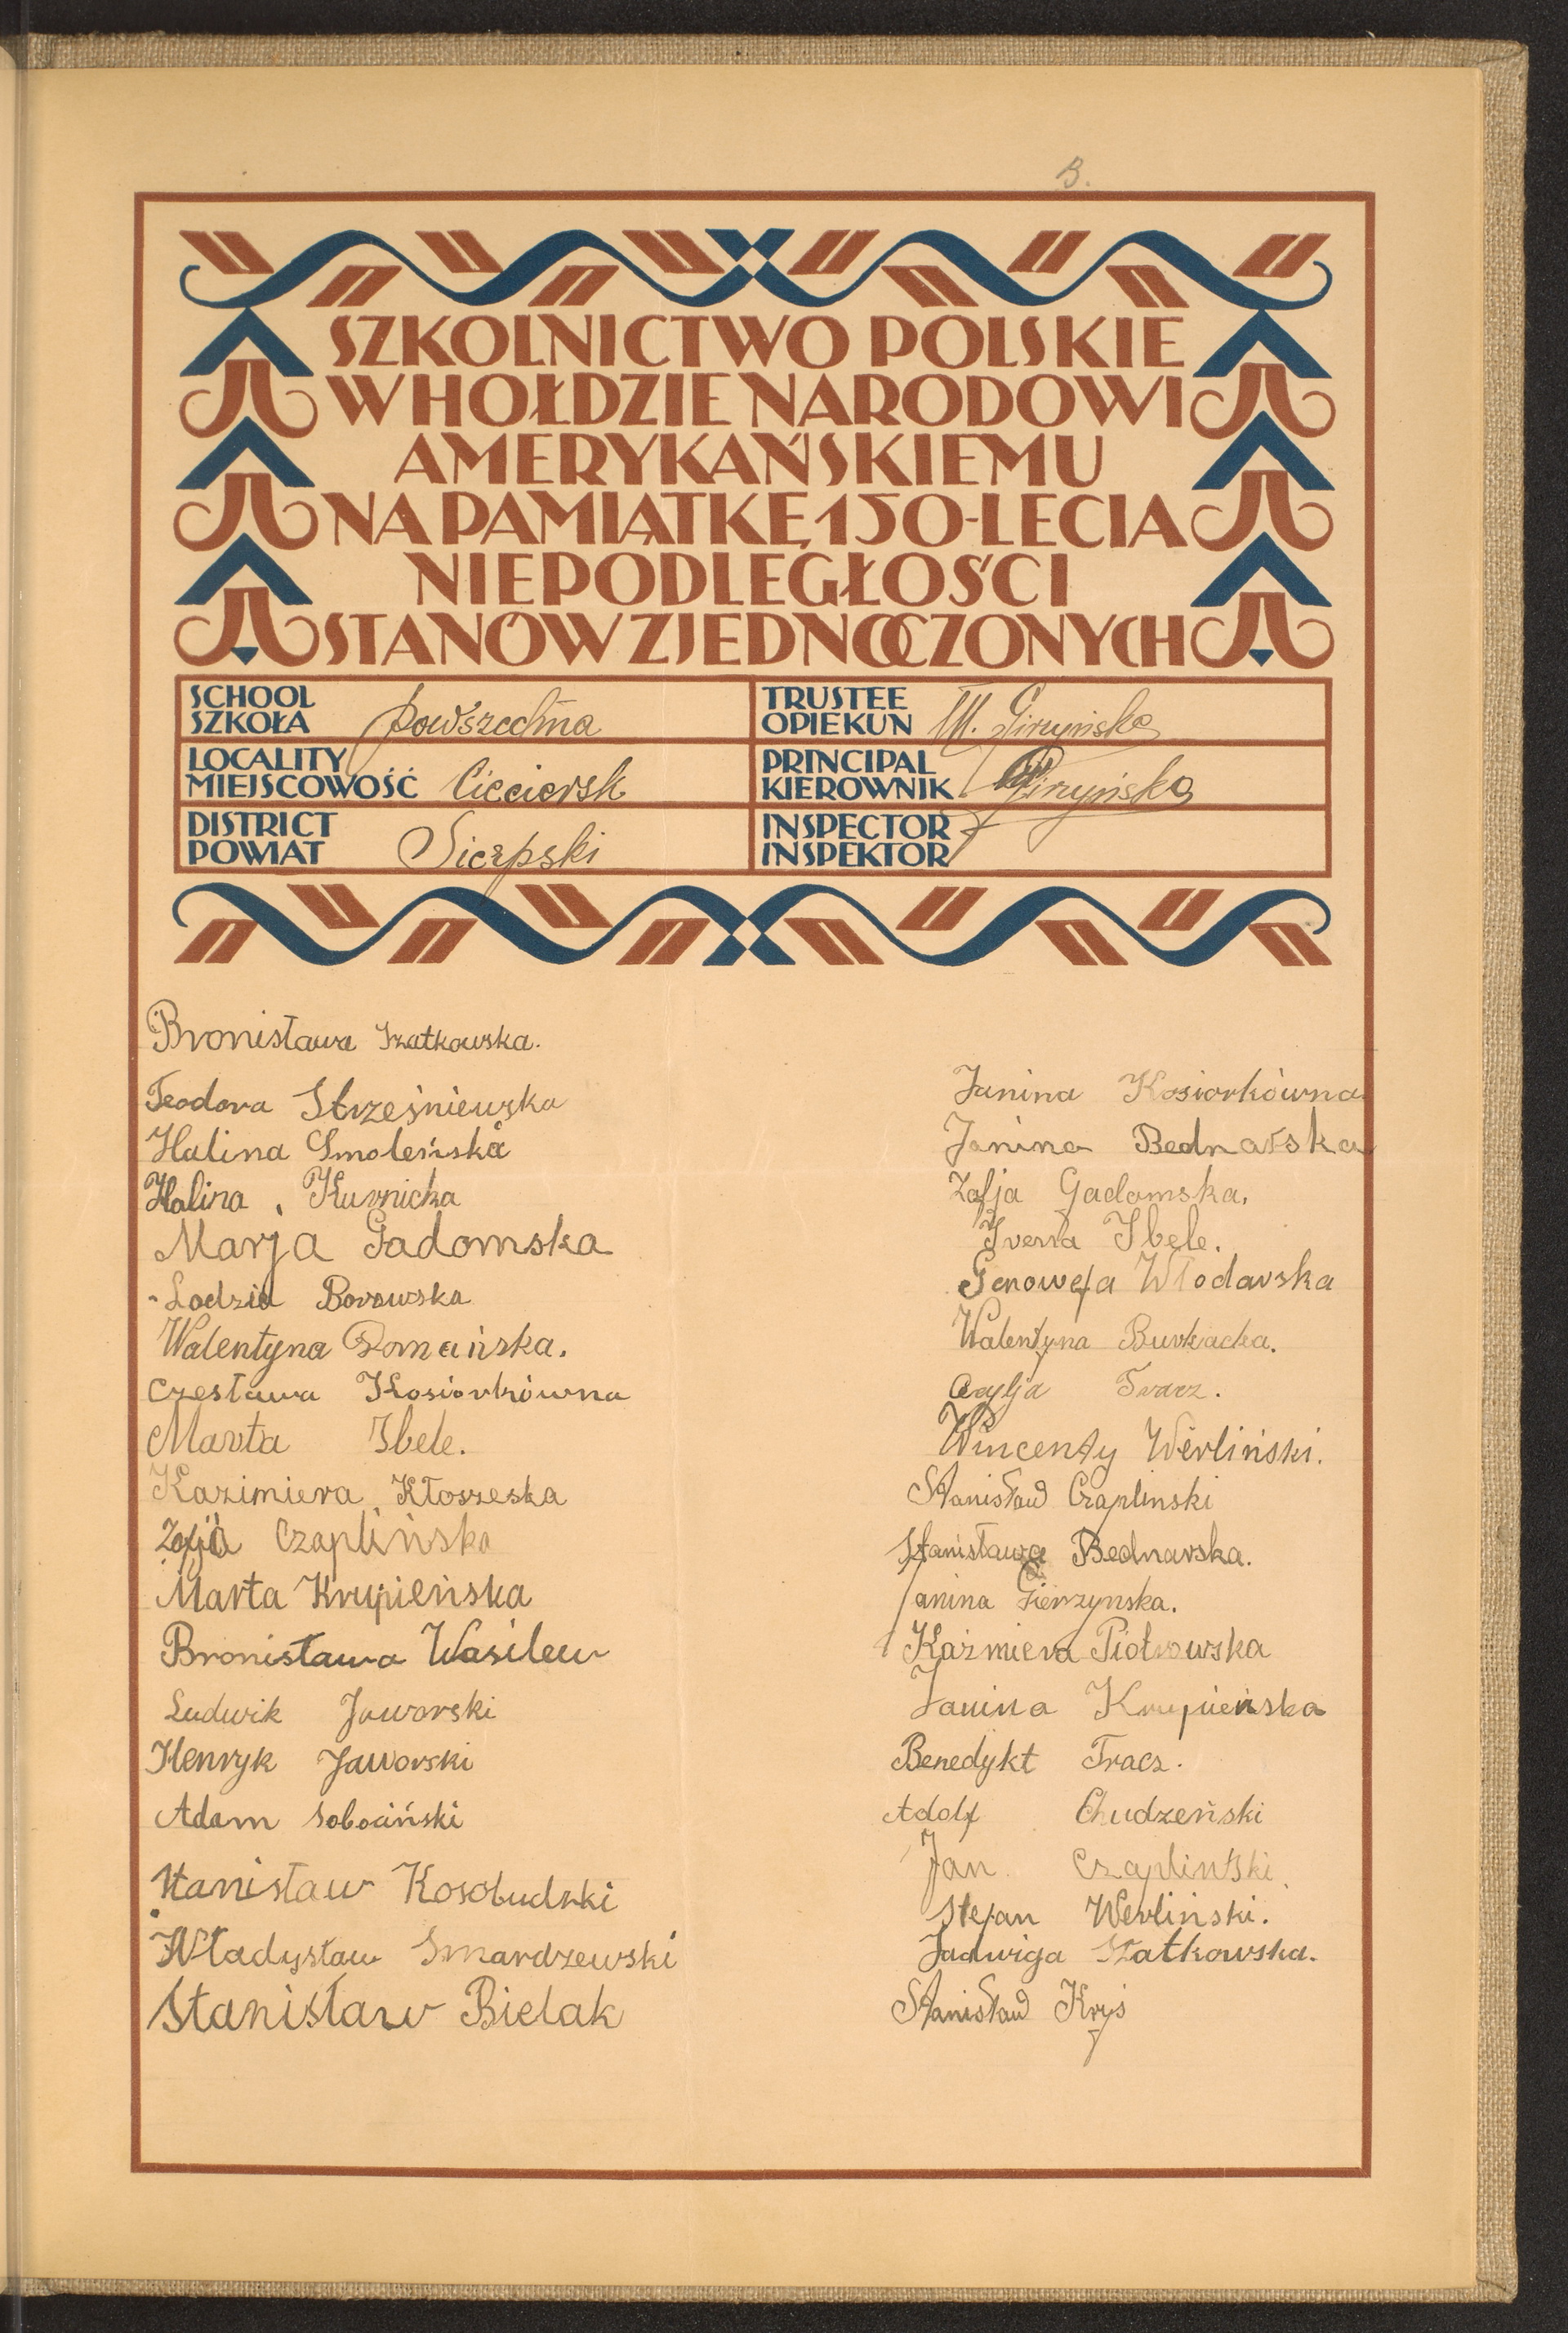 B.
SZKOLNICTWO POLSKIE
W HOŁDZIE NARODOWI
AMERYKAŃSKIEMU
NA PAMIĄTKĘ 150-LECIA
NIEPODLEGŁOŚCI
STANÓW ZJEDNOCZONYCH
SCHOOL
SZKOŁA Powszechna
TRUSTEE
OPIEKUN M. Girzyńska
LOCALITY
MIEJSCOWOŚĆ Cieciersk
PRINCIPAL
KIEROWNIK Girzyńska
DISTRICT
POWIAT Sierpski
INSPECTOR
INSPEKTOR
Bronisława Szatkowska.
Teodora Strześniewska
Halina Smoleńska
Halina Kurnicka
Marja Gadomska
Lodzia Borowska
Walentyna Domańska.
Czesława Kosiorkówna
Marta Ibele.
Kazimiera Kłoszeska
Zofja Czaplińska
Marta Krupieńska
Bronisława Wasilew
Ludwik Jaworski
Henryk Jaworski
Adam Sobociński
Stanisław Kosobudzki
Władysław Smardzewski
Stanisław Bielak
Janina Kosiorkówna
Janina Bednarska
Zofja Gadomska.
Irena Ibele.
Genowefa Włodarska
Walentyna Burkacka.
Cecylja Tracz.
Wincenty Werliński.
Stanisław Czaplinski
Stanisława Bednarska.
Janina Gierzynska.
Kaźmiera Piotrowska
Janina Krupieńska
Benedykt Tracz.
Adolf Chudzeński
Jan Czapliński
Stefan Werliński.
Jadwiga Szatkowska.
Stanisław Kryś